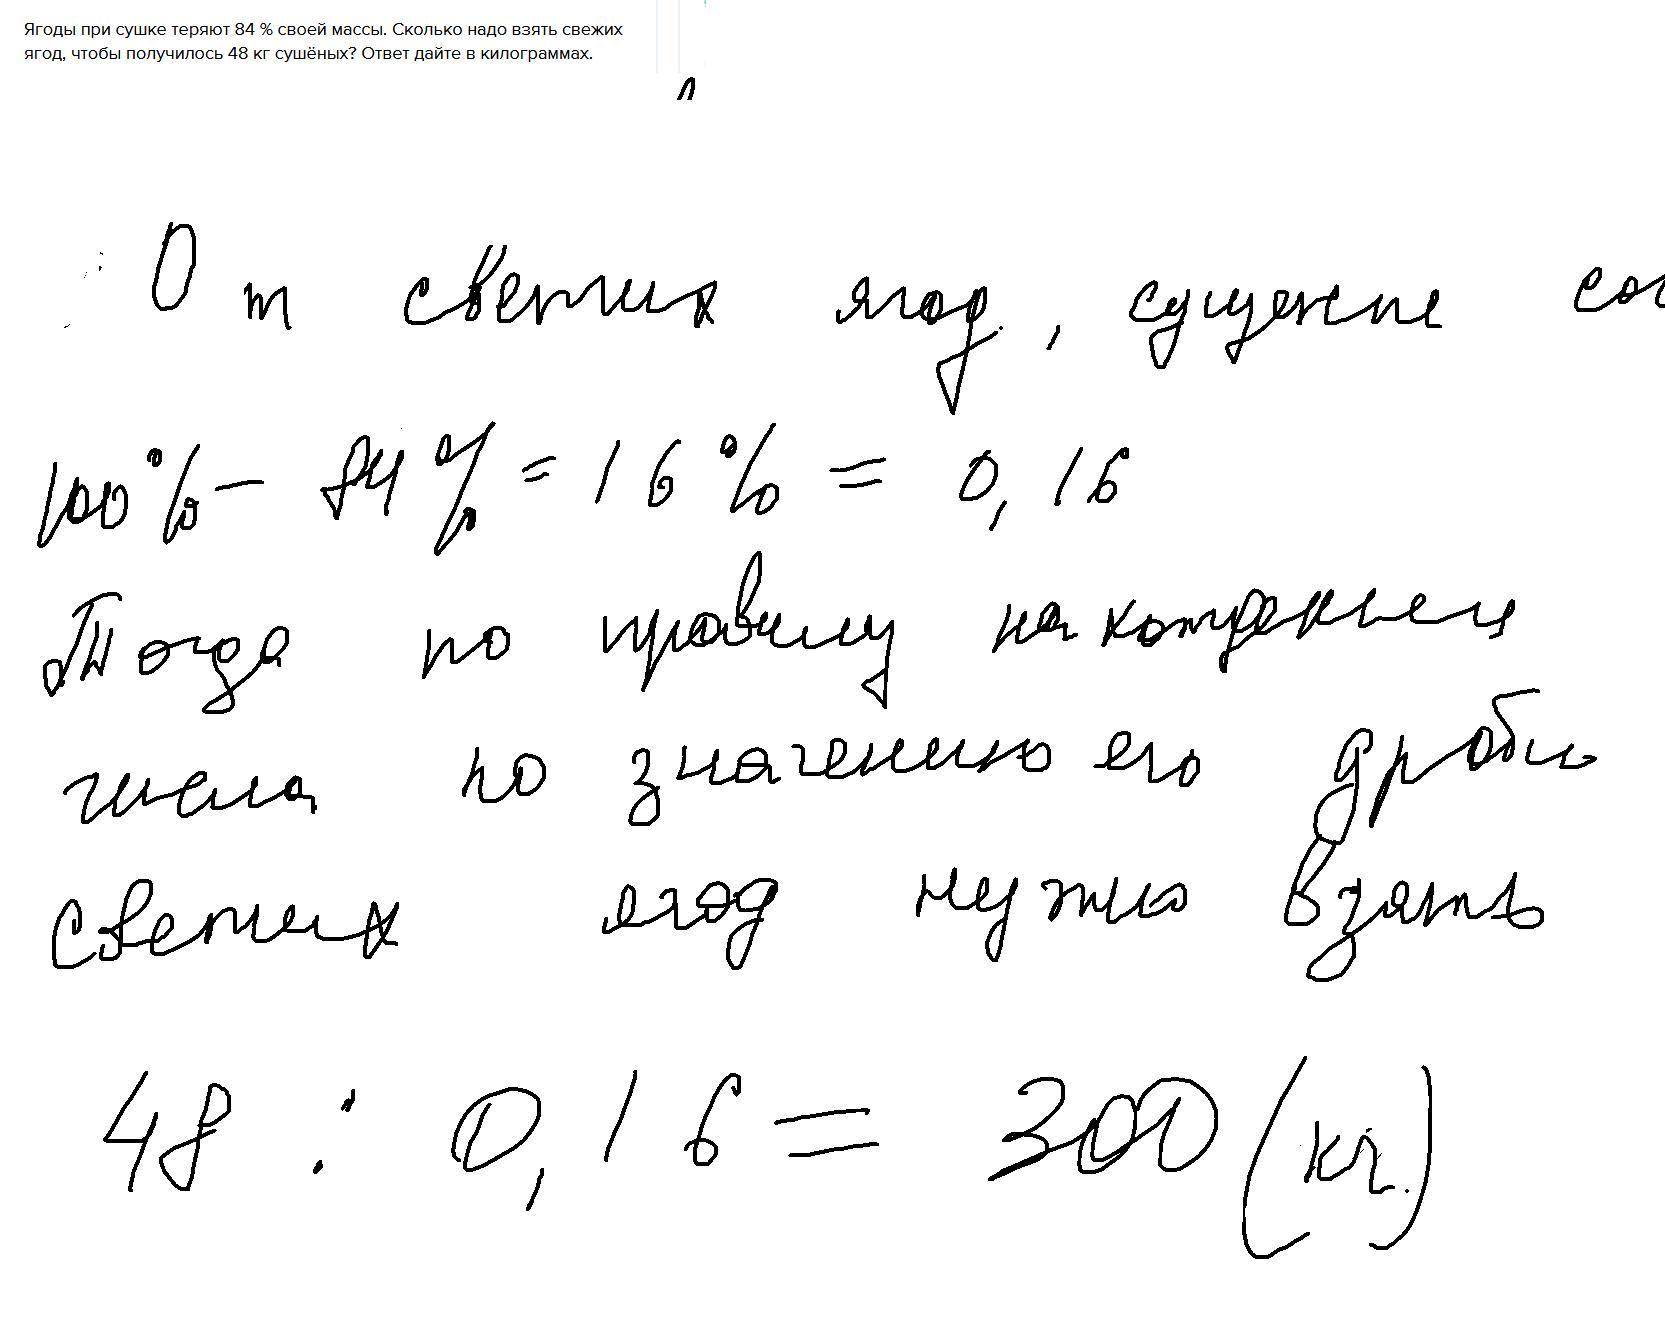 Ягоды при сушке теряют 84 % своей массы. Сколько надо взять свежих
ягод, чтобы получилось 48 кг сушёных? Ответ дайте в килограммах.
От свежих ягод, сущеные сос
100% - 84% = 16% = 0,16
Тогда по правилу нахождения
числа по значению его дроби
свежих ягод нужно взять
48 : 0,16 = 300 (кг.)